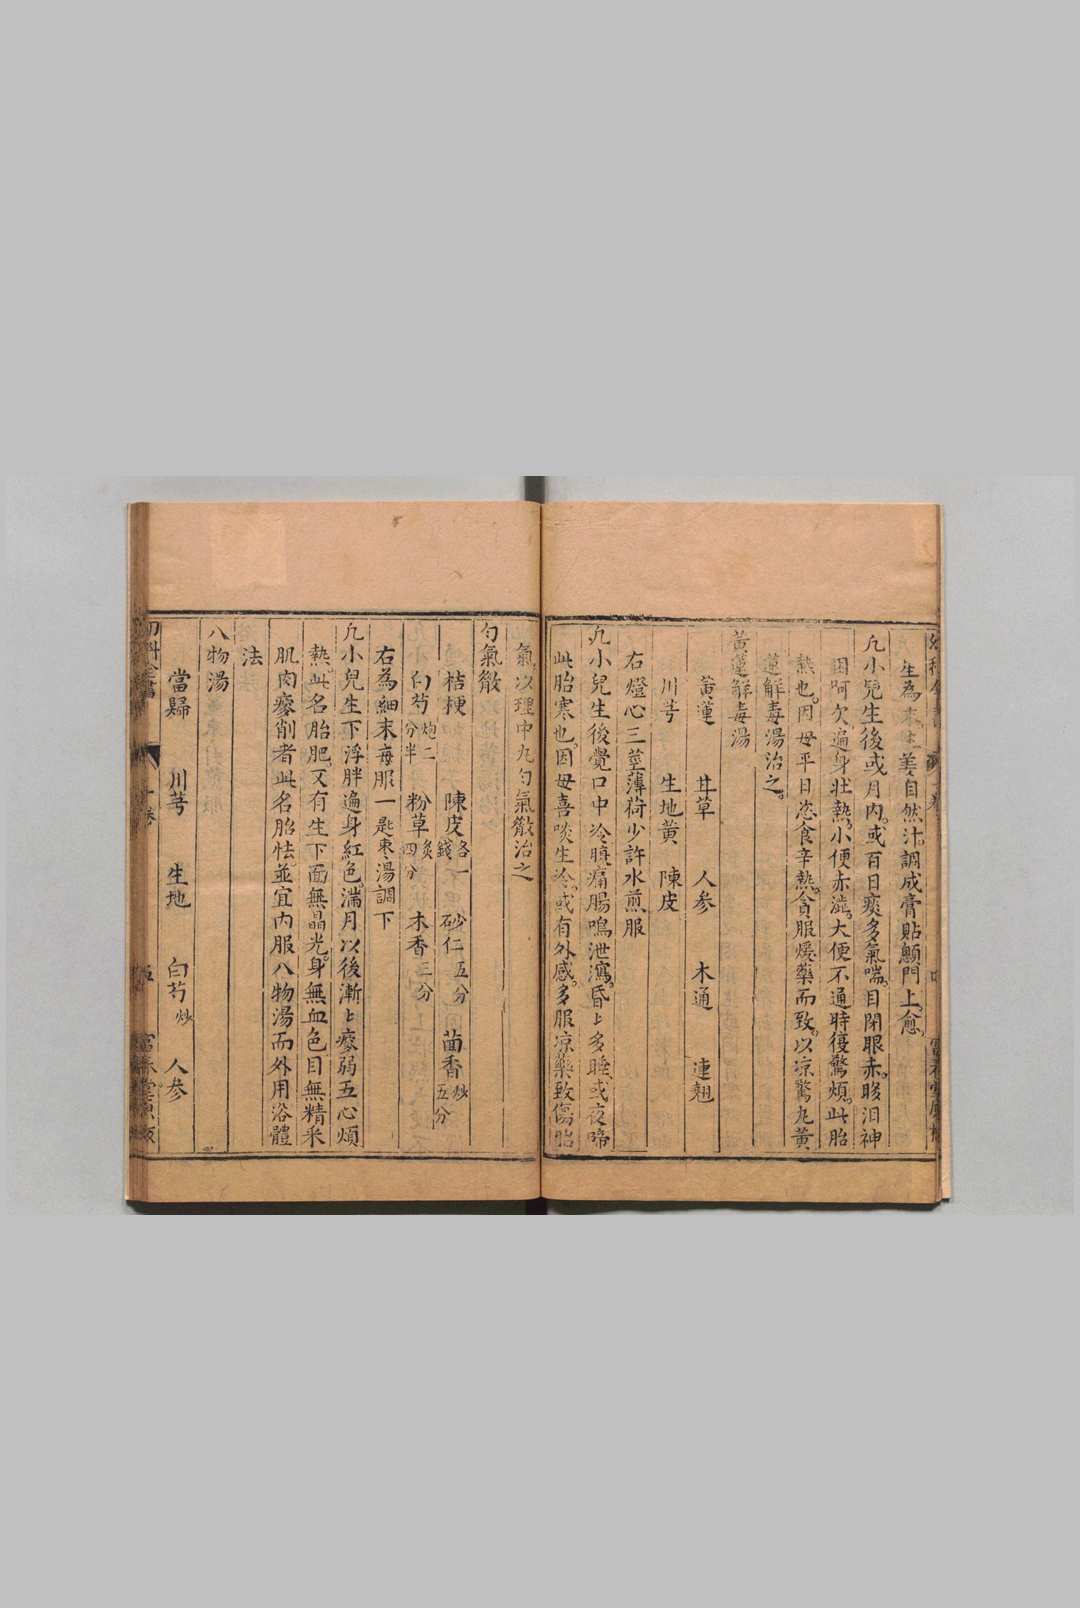 生為末。生姜自然汁調成膏貼顖門上。愈。
凢小兒生後或月內。或百日痰多氣喘。目閉眼赤。眵泪神
困呵欠。遍身壯熱。小便赤澁。大便不通時復驚煩。此胎
熱也。因母平日恣食辛熱。貪服煖藥而致。以凉驚丸黃
蓮解毒湯治之。
黃蓮解毒湯
黃蓮 甘草 人参 木通 連翹
川芎 生地黃 陳皮
右燈心三莖薄荷少許水煎服
凢小兒生後覺口中冷。腹痛腸鳴泄瀉。昏〻多睡。或夜啼
此胎寒也。因母喜啖生冷。或有外感。多服凉藥致傷胎
氣。以理中丸勻氣散治之
勻氣散
桔梗 陳皮各一錢 砂仁五分 茴香炒五分
白芍炮二分半 粉草炙四分 木香三分
右為細末每服一匙棗湯調下
凢小兒生下浮胖遍身紅色。滿月以後漸〻瘦弱五心煩
熱。此名胎肥。又有生下面無晶光。身無血色目無精采
肌肉瘦削者此名胎怯。並宜內服八物湯而外用浴體
法
八物湯
當歸 川芎 生地 白芍炒 人参
幼科全書 一卷 五